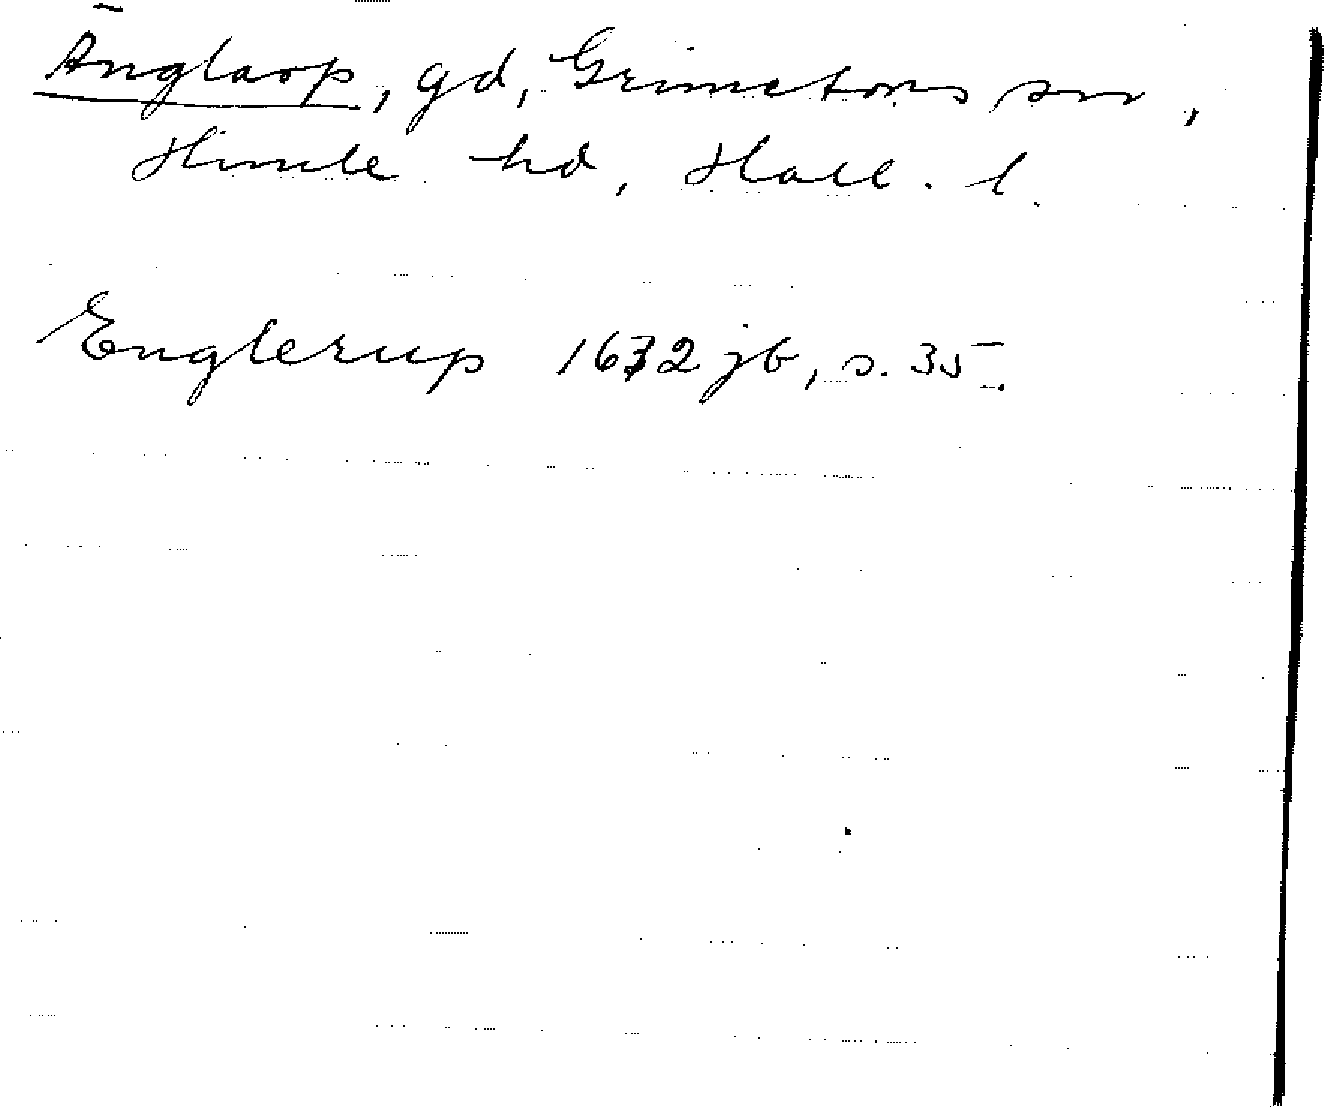 Änglarp, gd, Grimetons sn,
Himle hd, Hall. l.
Englerup 1632 jb, s. 35.